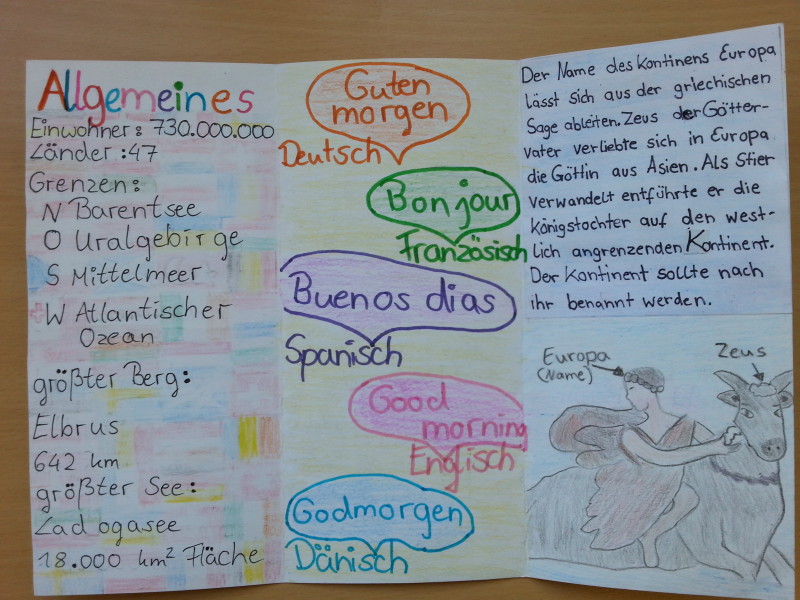 Allgemeines
Einwohner: 730.000.000
Länder: 47
Grenzen:
N Barentsee
O Uralgebirge
S Mittelmeer
W Atlantischer
Ozean
größter Berg:
Elbrus
642 km
größter See:
Ladogasee
18.000 km² Fläche
Guten
morgen
Deutsch
Bonjour
Französisch
Buenos dias
Spanisch
Good
morning
Englisch
Godmorgen
Dänisch
Der Name des Kontinens Europa
lässt sich aus der griechischen
Sage ableiten. Zeus der Götter-
vater verliebte sich in Europa
die Göttin aus Asien. Als Stier
verwandelt entführte er die
Königstochter auf den west-
lich angrenzenden Kontinent.
Der Kontinent sollte nach
ihr benannt werden.
Europa
(Name)
Zeus